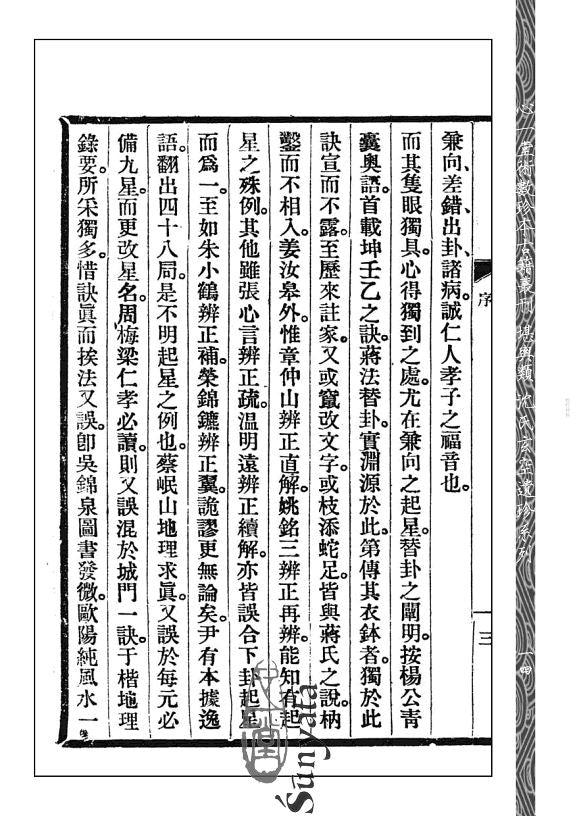 兼向差錯出卦諸病。誠仁人孝子之福音也。
而其隻眼獨具。心得獨到之處。尤在兼向之起星。替卦之闡明。按楊公青
囊奧語。首載坤壬乙之訣。蔣法替卦。實淵源於此。第傳其衣鉢者。獨於此
訣宣而不露。至歷來註家。又或竄改文字。或枝添蛇足。皆與蔣氏之說。枘
鑿而不相入。姜汝皋外。惟章仲山辨正直解。姚銘三辨正再辨。能知有起
星之殊例。其他雖張心言辨正疏。溫明遠辨正續解。亦皆誤合下卦起星
而爲一。至如朱小鶴辨正補。榮錫鑣辨正翼。詭謬更無論矣。尹有本據逸
語。翻出四十八局。是不明起星之例也。蔡岷山地理求眞。又誤於每元必
備九星。而更改星名。周梅梁仁孝必讀。則又誤混於城門一訣。于楷地理
錄要。所采獨多。惜訣眞而挨法又誤。卽吳錦泉圖書發微。歐陽純風水一
序
三
心一堂術數珍本古籍叢刊 堪輿類 沈氏玄空遺珍系列
一四
心一堂
Śūnyatā